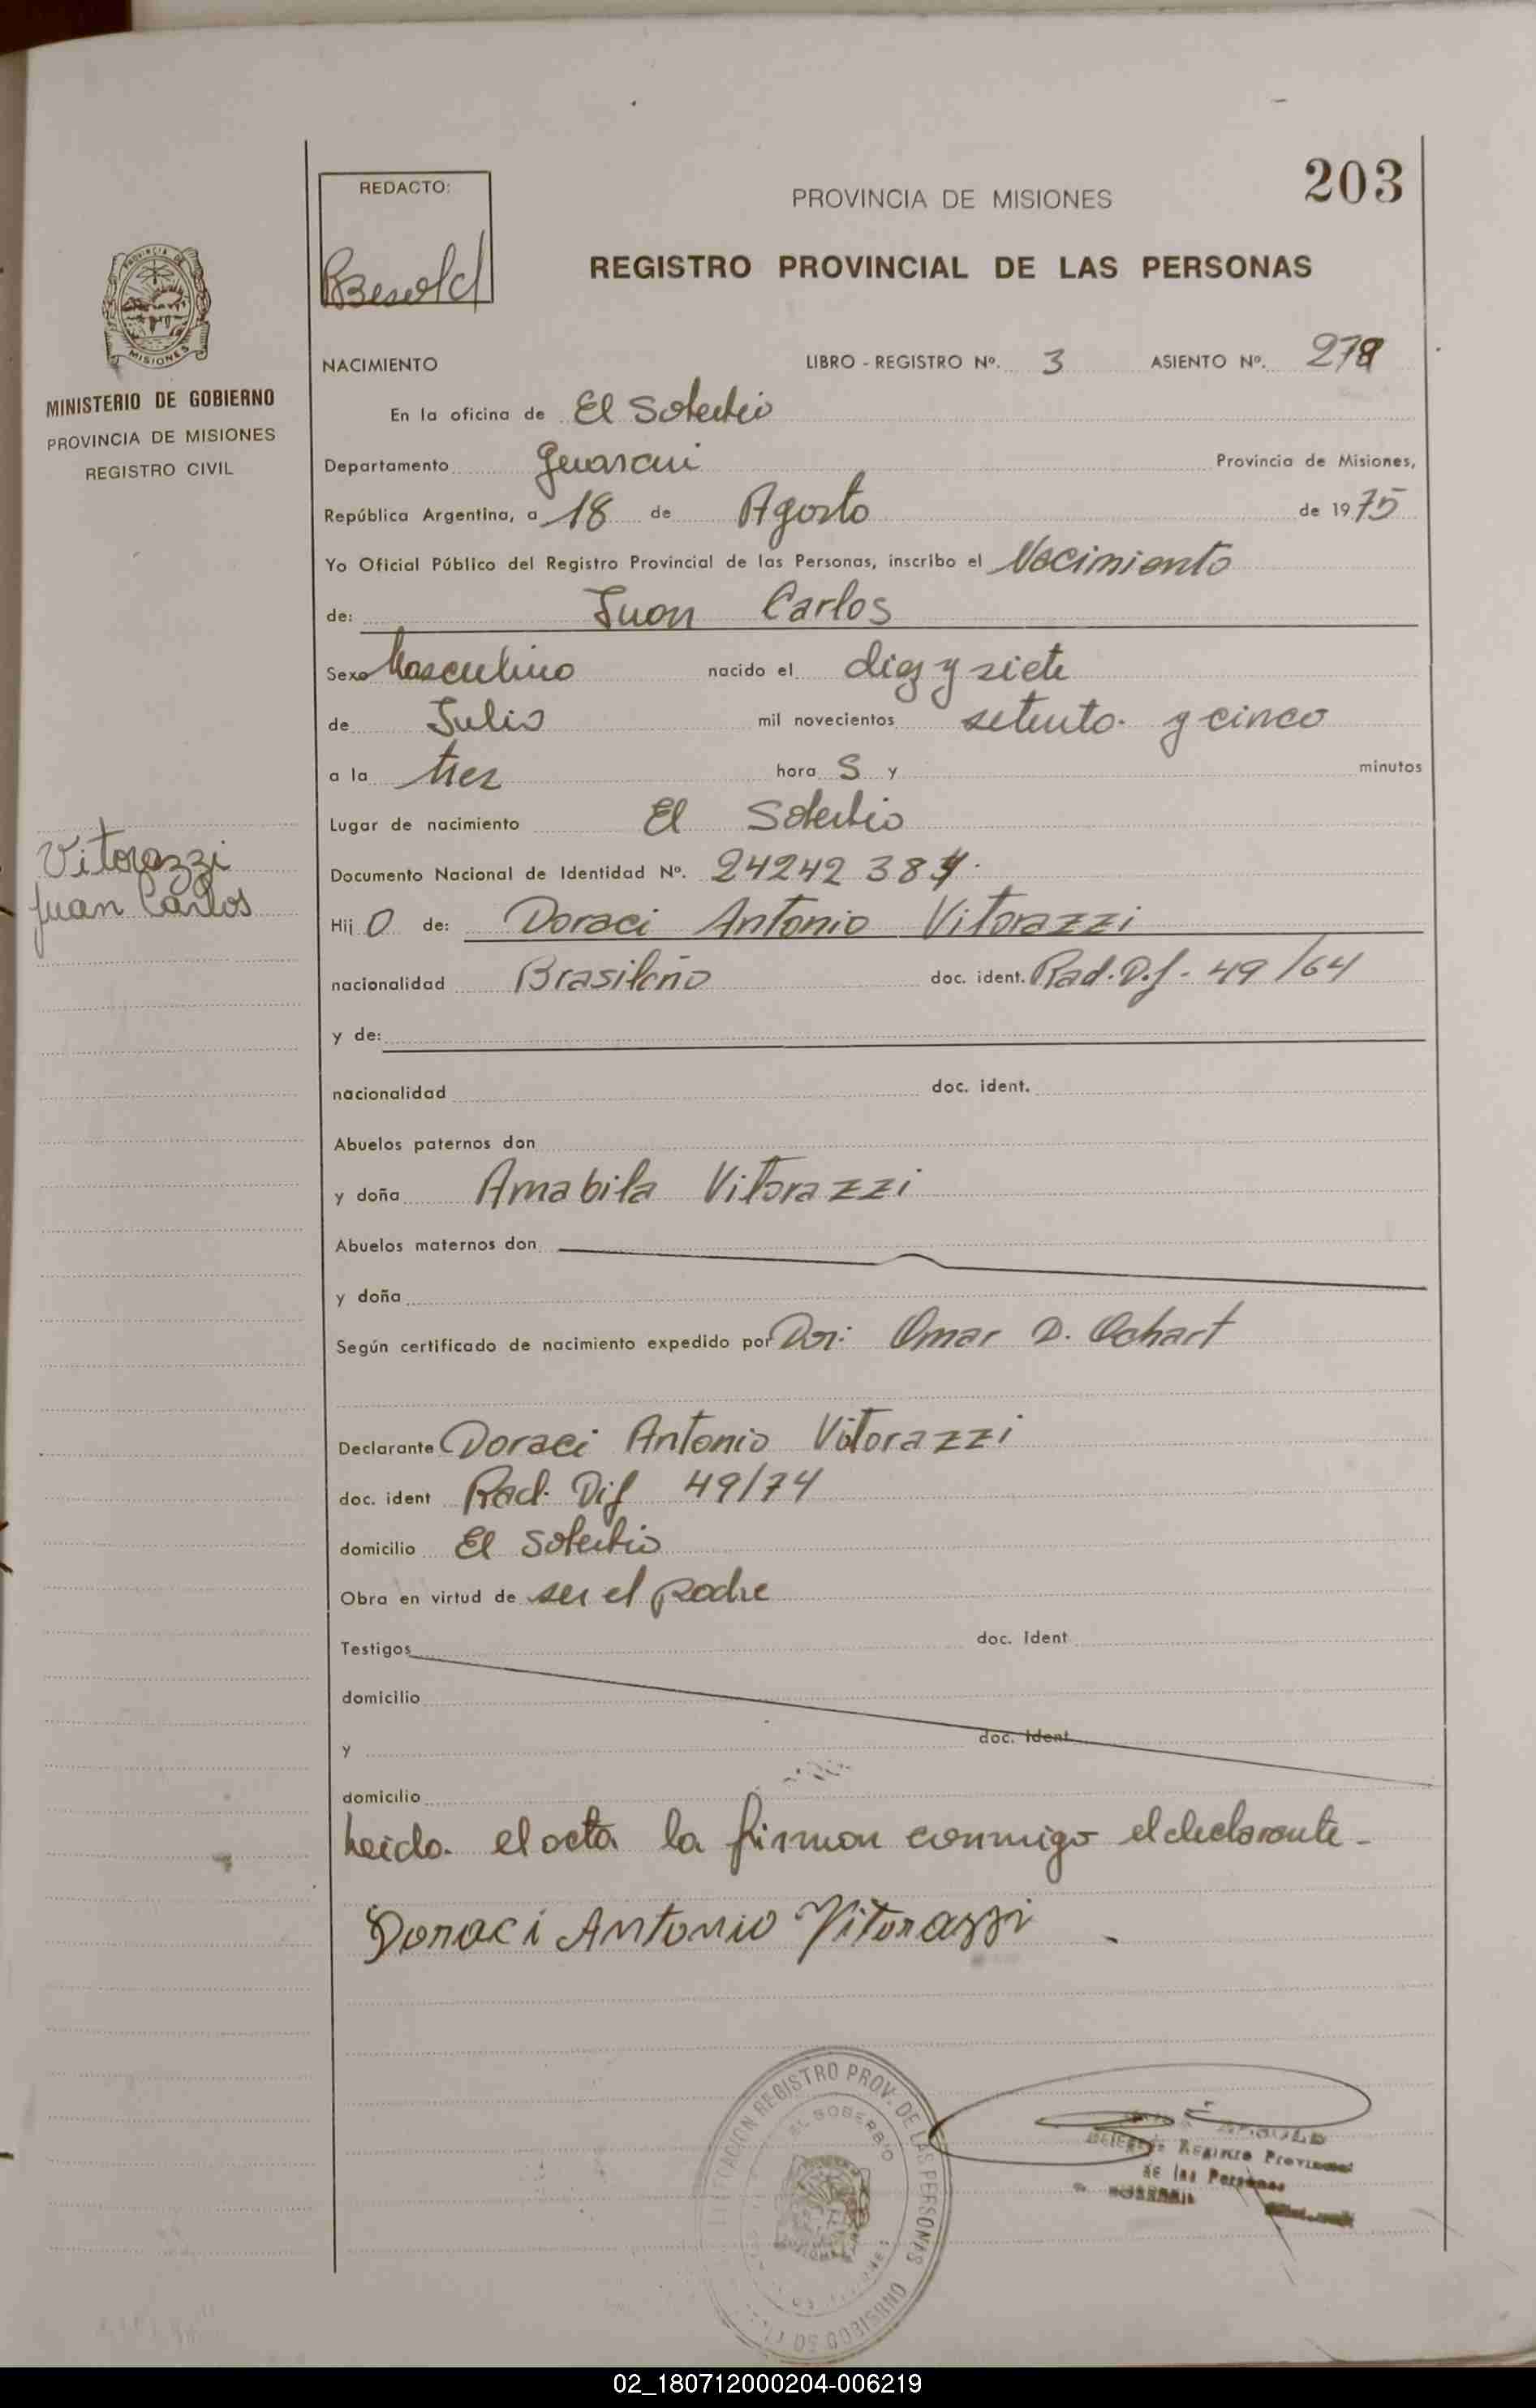 203
REDACTO:
Besold
PROVINCIA DE MISIONES
REGISTRO PROVINCIAL DE LAS PERSONAS
PROVINCIA DE
MISIONES
MINISTERIO DE GOBIERNO
PROVINCIA DE MISIONES
REGISTRO CIVIL
NACIMIENTO LIBRO - REGISTRO Nº. 3 ASIENTO Nº. 278
En la oficina de El Soberbio
Departamento Guarani Provincia de Misiones,
República Argentina, a 18 de Agosto de 1975
Yo Oficial Público del Registro Provincial de las Personas, inscribo el Nacimiento
de: Juan Carlos
Sexo Masculino nacido el diez y siete
de Julio mil novecientos setenta y cinco
a la tres hora S y minutos
Lugar de nacimiento El Soberbio
Documento Nacional de Identidad Nº. 24242 38
Vitorazzi
Juan Carlos
Hij O de: Doraci Antonio Vitorazzi
nacionalidad Brasileño doc. ident. Rad. D.f - 49/64
y de:
nacionalidad doc. ident.
Abuelos paternos don
y doña Amabila Vitorazzi
Abuelos maternos don
y doña
Según certificado de nacimiento expedido por Dor: Omar D. Ochart
Declarante Doraci Antonio Vitorazzi
doc. ident Rad. Dif 49/74
domicilio El Soberbio
Obra en virtud de ser el padre
Testigos doc. Ident
domicilio
y doc. Ident
domicilio
Leida el acta la firman conmigo el declarante -
Doraci Antonio Vitorazzi
REGISTRO PROV. DE LAS PERSONAS
EL SOBERBIO
Registro Provincial
de las Personas
02_180712000204-006219